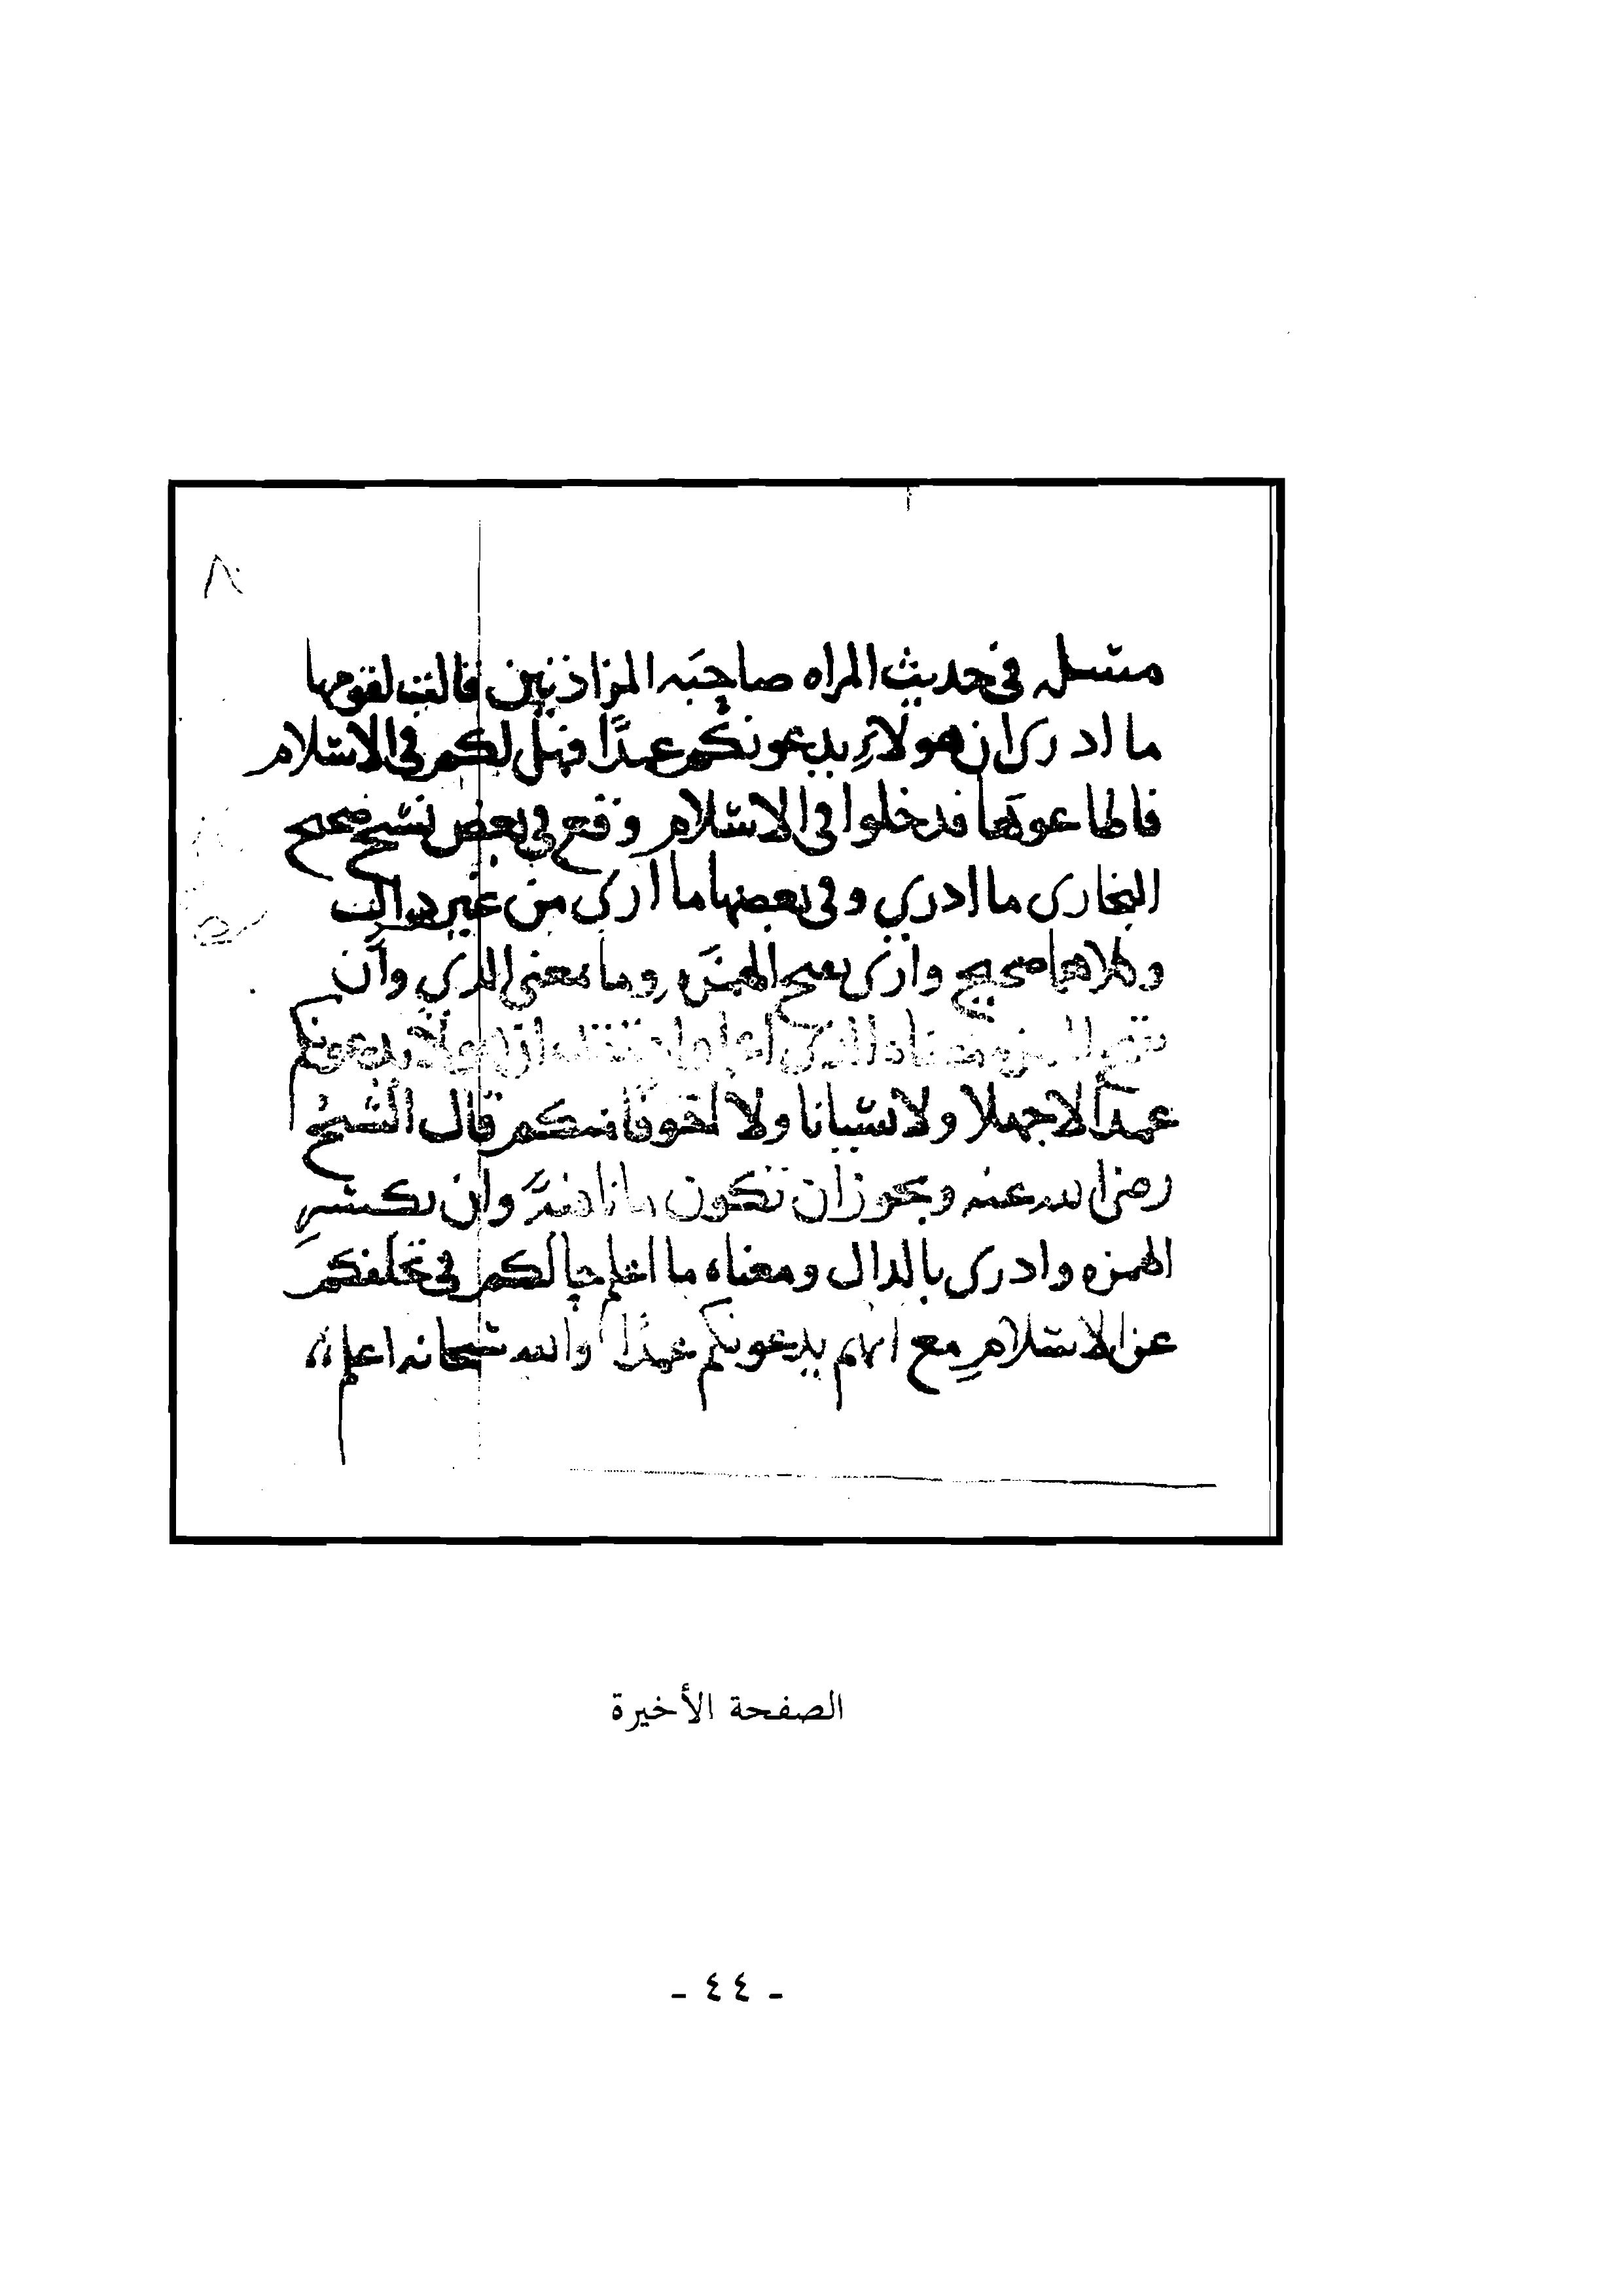 مسله في حديث المراه صاحبه المزادتين قالت لقومها
ما ادرى ان هولاء يدعونكم عمدًا فهل لكم في الاسلام
فاطاعوها فدخلوا في الاسلام وقع في بعض نسخ صحيح
البخارى ما ادري وفي بعضها ما ارى من غير دال
وكلاهما صحيح وارى بفتح الهمزه وما بمعنى الذي وان
بفتح الهمزه معناه الذى اعتقده ان هولا يدعونكم
عمدًا لا جهلا ولا نسيانا ولا خوفا منكم قال الشيخ
رضى الله عنه ويجوز ان تكون ما نافيه وان بكسر
الهمزه وادرى بالدال ومعناه ما اعلم حالكم في تخلفكم
عن الاسلام مع انهم يدعونكم عمدًا والله سبحانه اعلم
الصفحة الأخيرة
- ٤٤ -